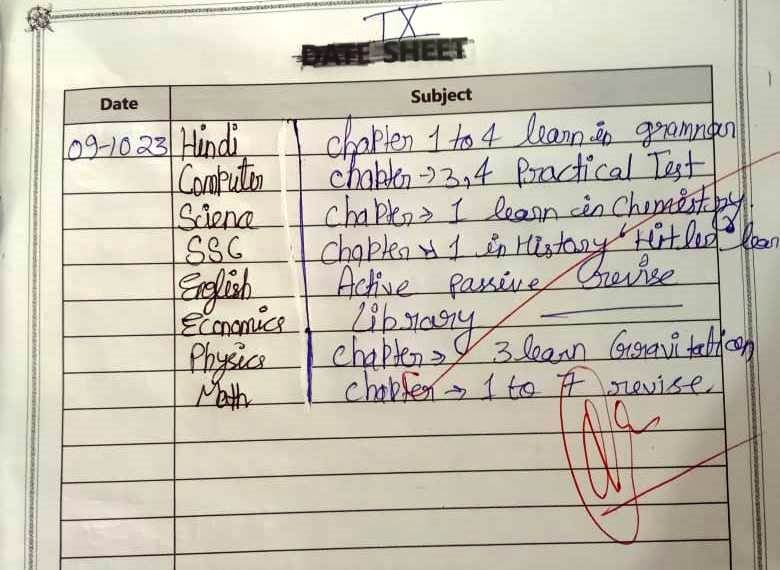 IX
DATE SHEET
Date Subject
09-10 23 Hindi chapter 1 to 4 learn in grammar
Computer chapter → 3,4 Practical Test
Science chapter → 1 learn in Chemistry.
SSC Chapter → 1 in History "Hitler" lear
English Active passive revise
Economics Library
Physics chapter → 3 learn Gravitation
Math chapter → 1 to 7 revise.